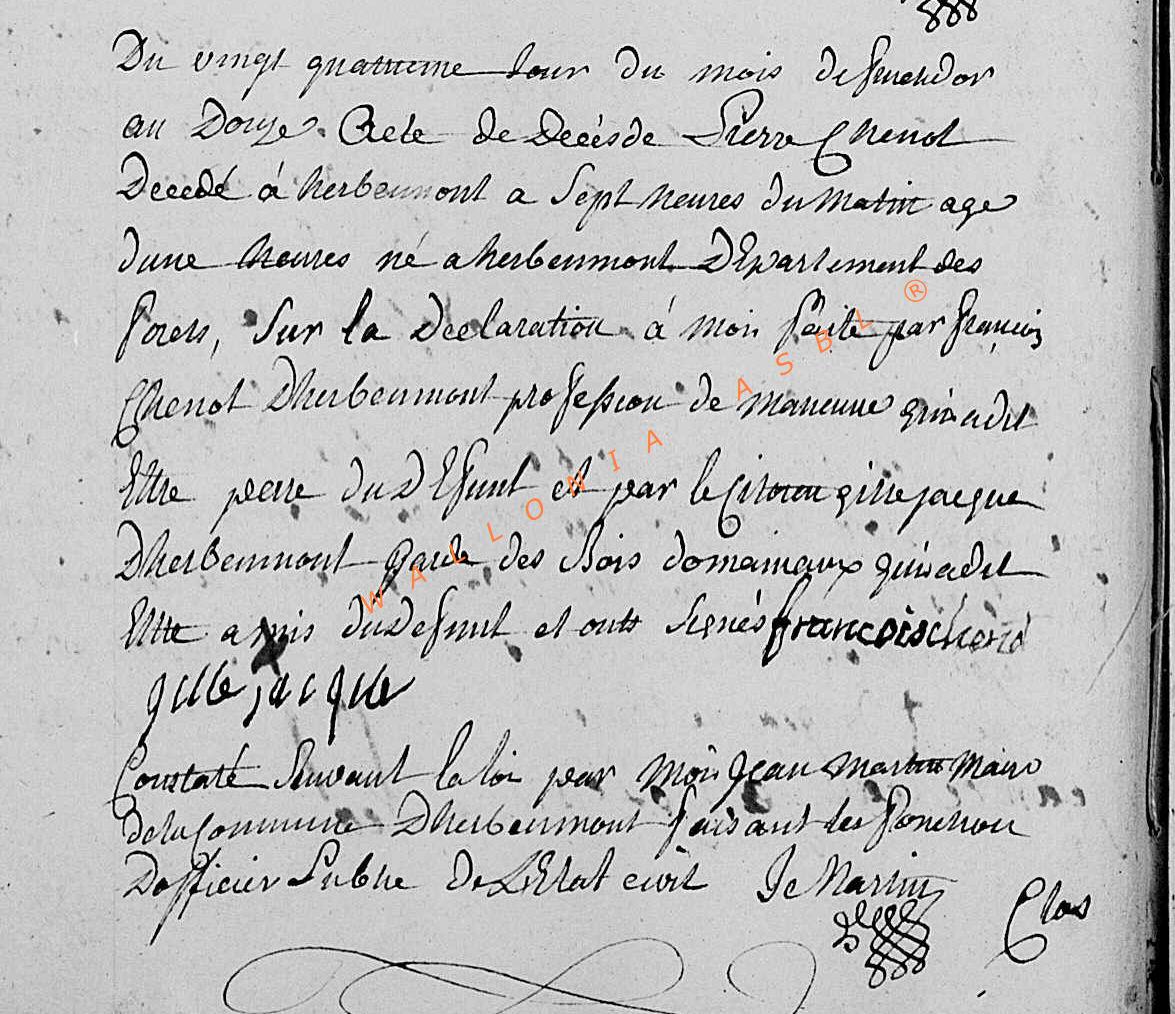 Du vingt quatrieme Jour du mois de fructidor
an Douze Acte de Decés de Pierre Chenot
Decedé á herbeumont a Sept heures du Matin age
dune heures né a herbeumont Département des
forets, Sur la Declaration á moi faite par françois
Chenot Dherbeumont profession de maneuvre qui a dit
Ettre pere du Défunt et par le Citoien gille jacque
Dherbeumont garde des Bois domainaux qui a dit
Ettre amis du Defunt et ont Signés françois chenot
gille jacque
Constaté Suivant la loi par Moi Jean Martin Maire
de la Commune Dherbeumont faisant les fonction
Dofficier Public de LEtat civil Je Martin
Clos
WALLONIA ASBL ®